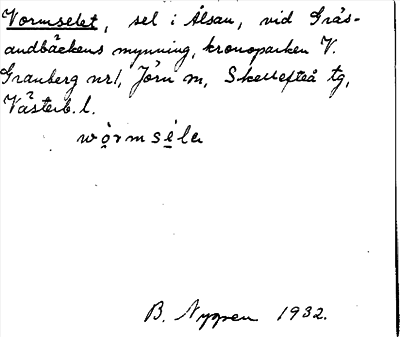 Vormselet, sel i Ålsån, vid Gräs-
andbäckens mynning, kronoparken V.
Granberg nr 1, Jörn sn, Skellefteå tg,
Västerb. l.
wormseler
B. Nygren 1932.